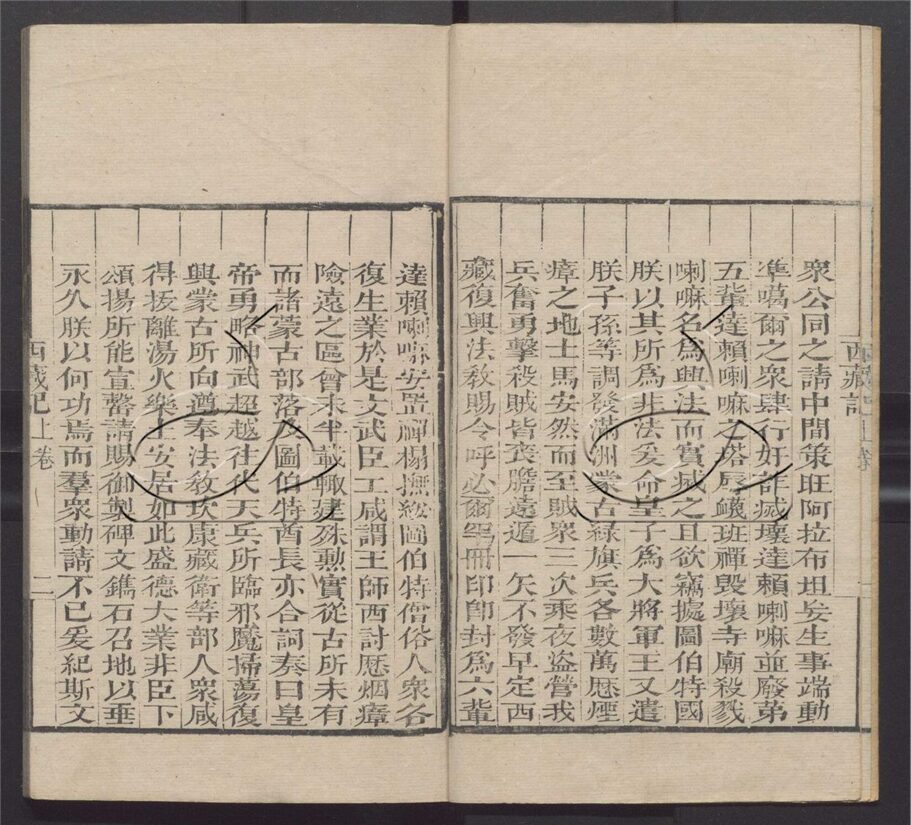 西藏記上卷
衆公同之請中間策旺阿拉布坦妄生事端動
準噶爾之衆肆行奸詐滅壞達賴喇嘛並廢第
五輩達賴喇嘛之塔辱衊班禪毀壞寺廟殺戮
喇嘛名爲興法而實滅之且欲竊據圖伯特國
朕以其所爲非法爰命皇子爲大將軍王又遣
朕子孫等調發滿洲蒙古綠旗兵各數萬歷煙
瘴之地士馬安然而至賊衆三次乘夜盜營我
兵奮勇擊殺賊皆喪膽遠遁一矢不發早定西
藏復興法教賜令呼必爾罕冊印即封爲六輩
達賴喇嘛安置禪榻撫綏圖伯特僧俗人衆各
復生業於是文武臣工咸謂王師西討歷烟瘴
險遠之區曾未半載輒建殊勳實從古所未有
而諸蒙古部落及圖伯特酋長亦合詞奏曰皇
帝勇略神武超越往代天兵所臨邪魔掃蕩復
興蒙古所向遵奉法教坎康藏衛等部人衆咸
得拔離湯火樂生安居如此盛德大業非臣下
頌揚所能宣罄請賜御製碑文鐫石召地以垂
永久朕以何功焉而羣衆動請不已爰紀斯文
西藏記上卷
二